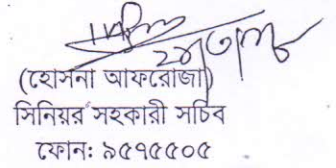 (হোসনা আফরোজা)
সিনিয়র সহকারী সচিব
ফোন: ৯৫৭৫৫০৫